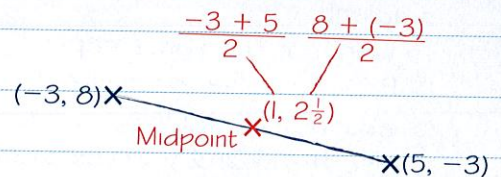 -3 + 5 8 + (-3)
2 2
(-3, 8)
(1, 2½)
Midpoint
(5, -3)